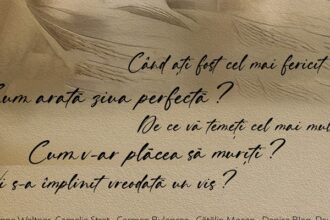 Când ați fost cel mai fericit
Cum arată ziua perfectă ?
De ce vă temeți cel mai mul
Cum v-ar plăcea să muriți ?
s-a împlinit vreodată un vis ?